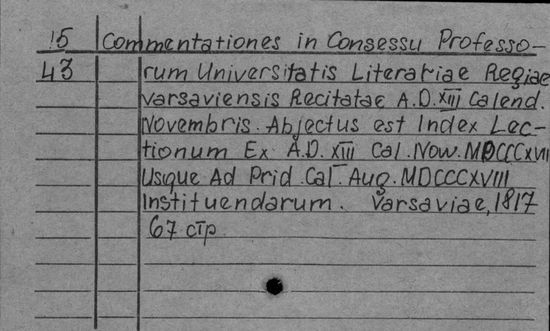 15 Commentationes in Consessu Professo-
43 rum Universitatis Literariae Regiae
Varsaviensis Recitatae A.D. XIII Calend.
Novembris. Abjectus est Index Lec-
tionum Ex A.D. XIII Cal. Now. MDCCCXVII
Usque Ad Prid. Cal. Aug. MDCCCXVIII
Instituendarum. Varsaviae, 1817
67 стр